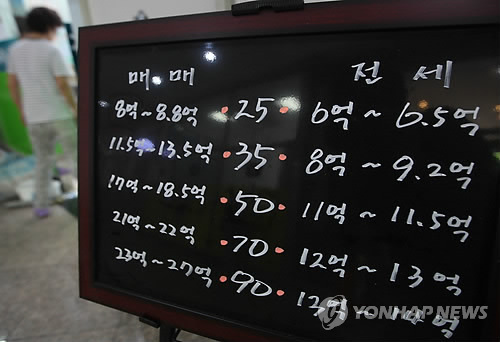 매매 전세
8억~8.8억 ·25· 6억~6.5억
11.5억~13.5억 ·35· 8억~9.2억
17억~18.5억 ·50· 11억~11.5억
21억~22억 ·70· 12억~13억
23억~27억 ·90· 13억~14억
YONHAP NEWS